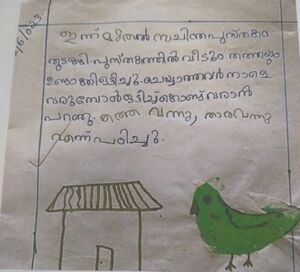 7/6/023
ഇന്ന് മുതൽ സചിത്ര പുസ്തകം
തുടങ്ങി. പുസ്തകത്തിൽ വീടും തത്തയും
ഉണ്ടാക്കി ഒട്ടിച്ചു. ചെയ്യാത്തവർ നാളെ
വരുമ്പോൾ ഒട്ടിച്ച് കൊണ്ട് വരാൻ
പറഞ്ഞു. തത്ത വന്നു, താര വന്നു
എന്ന് പഠിച്ചു.